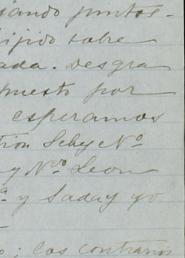 iando puntos-
ijido sobre
ada. desgra
puesto por
esperamos
y Nvo Leon
y Saday yo
; los contrarios